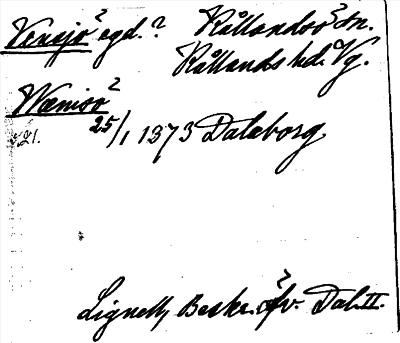 Vensjö egd.? Kållandsö sn.
Kållands hd. Vg.
Wænisö
25/1 1373 Dalaborg
Lignell, Beskr. öfv. Dal. II.